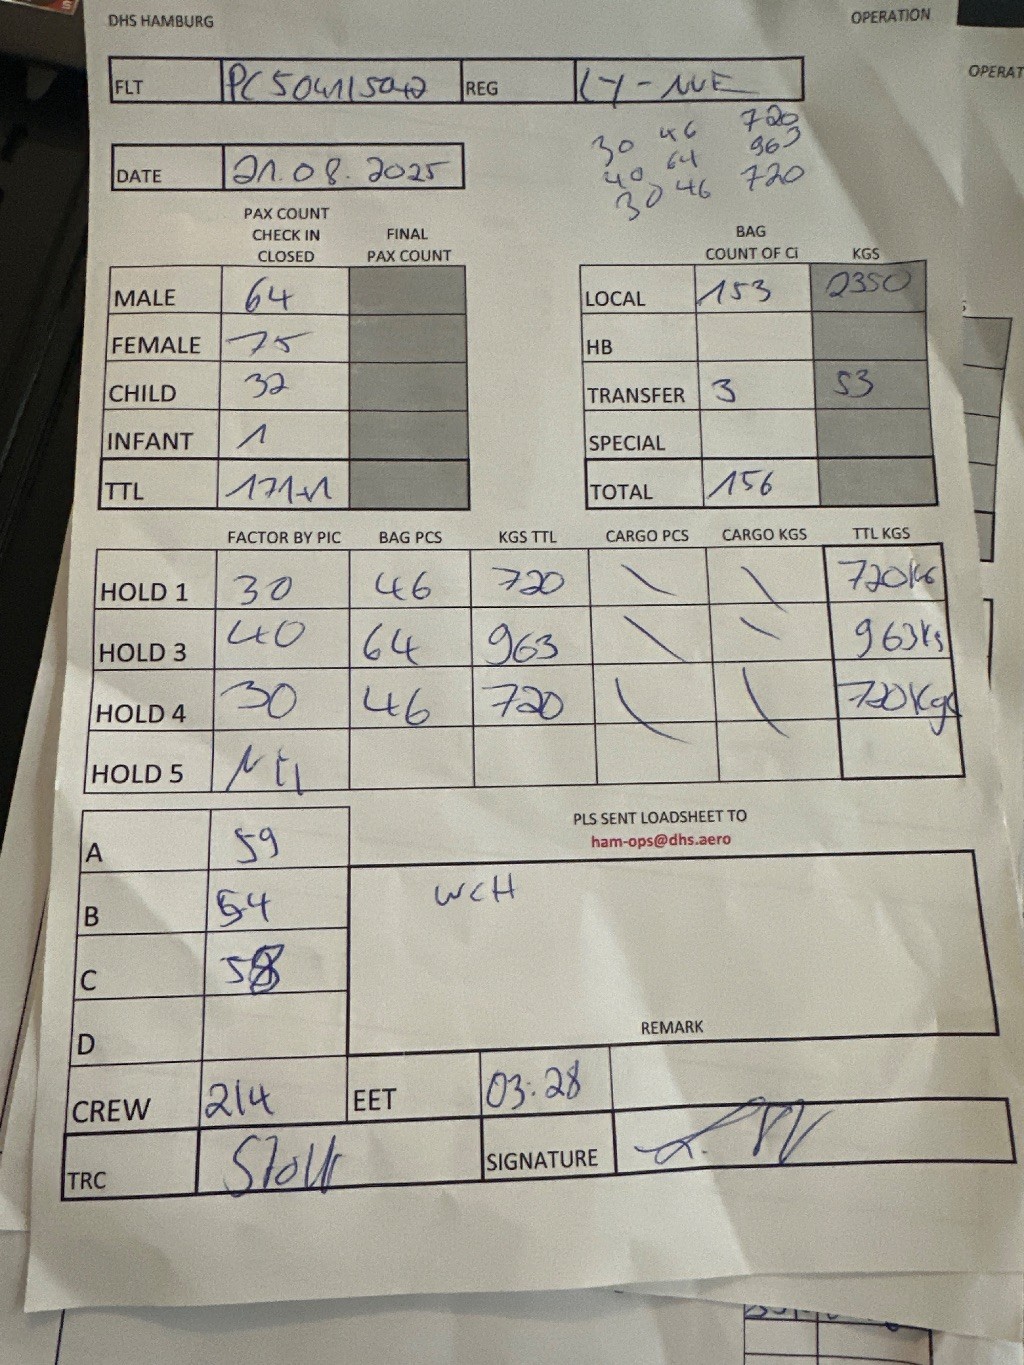 DHS HAMBURG OPERATION
OPERAT
FLT PC5041/5042 REG LY-NVE
30 46 720
40 64 963
30 46 720
DATE 21.08.2025
PAX COUNT CHECK IN CLOSED FINAL PAX COUNT
BAG COUNT OF Ci KGS
MALE 64
FEMALE 75
CHILD 32
INFANT 1
TTL 171+1
LOCAL 153 2350
HB
TRANSFER 3 53
SPECIAL
TOTAL 156
FACTOR BY PIC BAG PCS KGS TTL CARGO PCS CARGO KGS TTL KGS
HOLD 1 30 46 720 \ \ 720KG
HOLD 3 40 64 963 \ \ 963Kg
HOLD 4 30 46 720 \ \ 720Kgs
HOLD 5 Nil
A 59
B 54
C 58
D
PLS SENT LOADSHEET TO
ham-ops@dhs.aero
WCH
REMARK
CREW 2/4 EET 03:28
TRC SIGNATURE